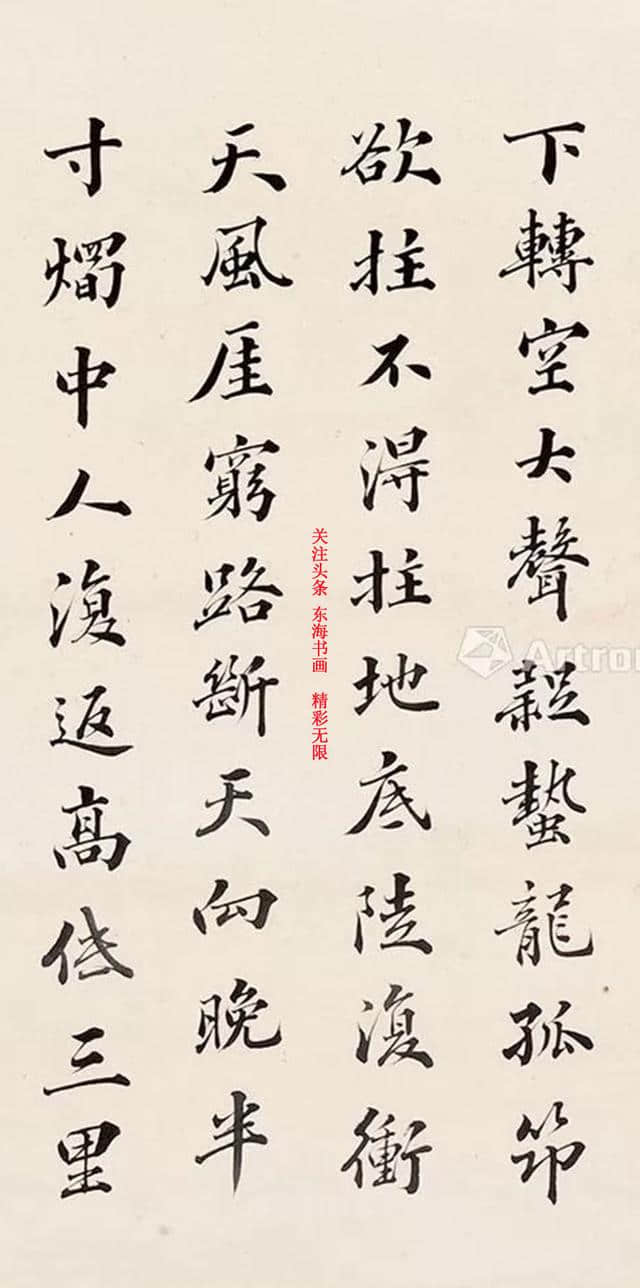 下轉空大聲蟄龍孤筇
欲拄不得拄地底陡復衝
天風厓窮路斷天向晚半
寸燭中人復返高低三里
关注头条 东海书画 精彩无限
Artron